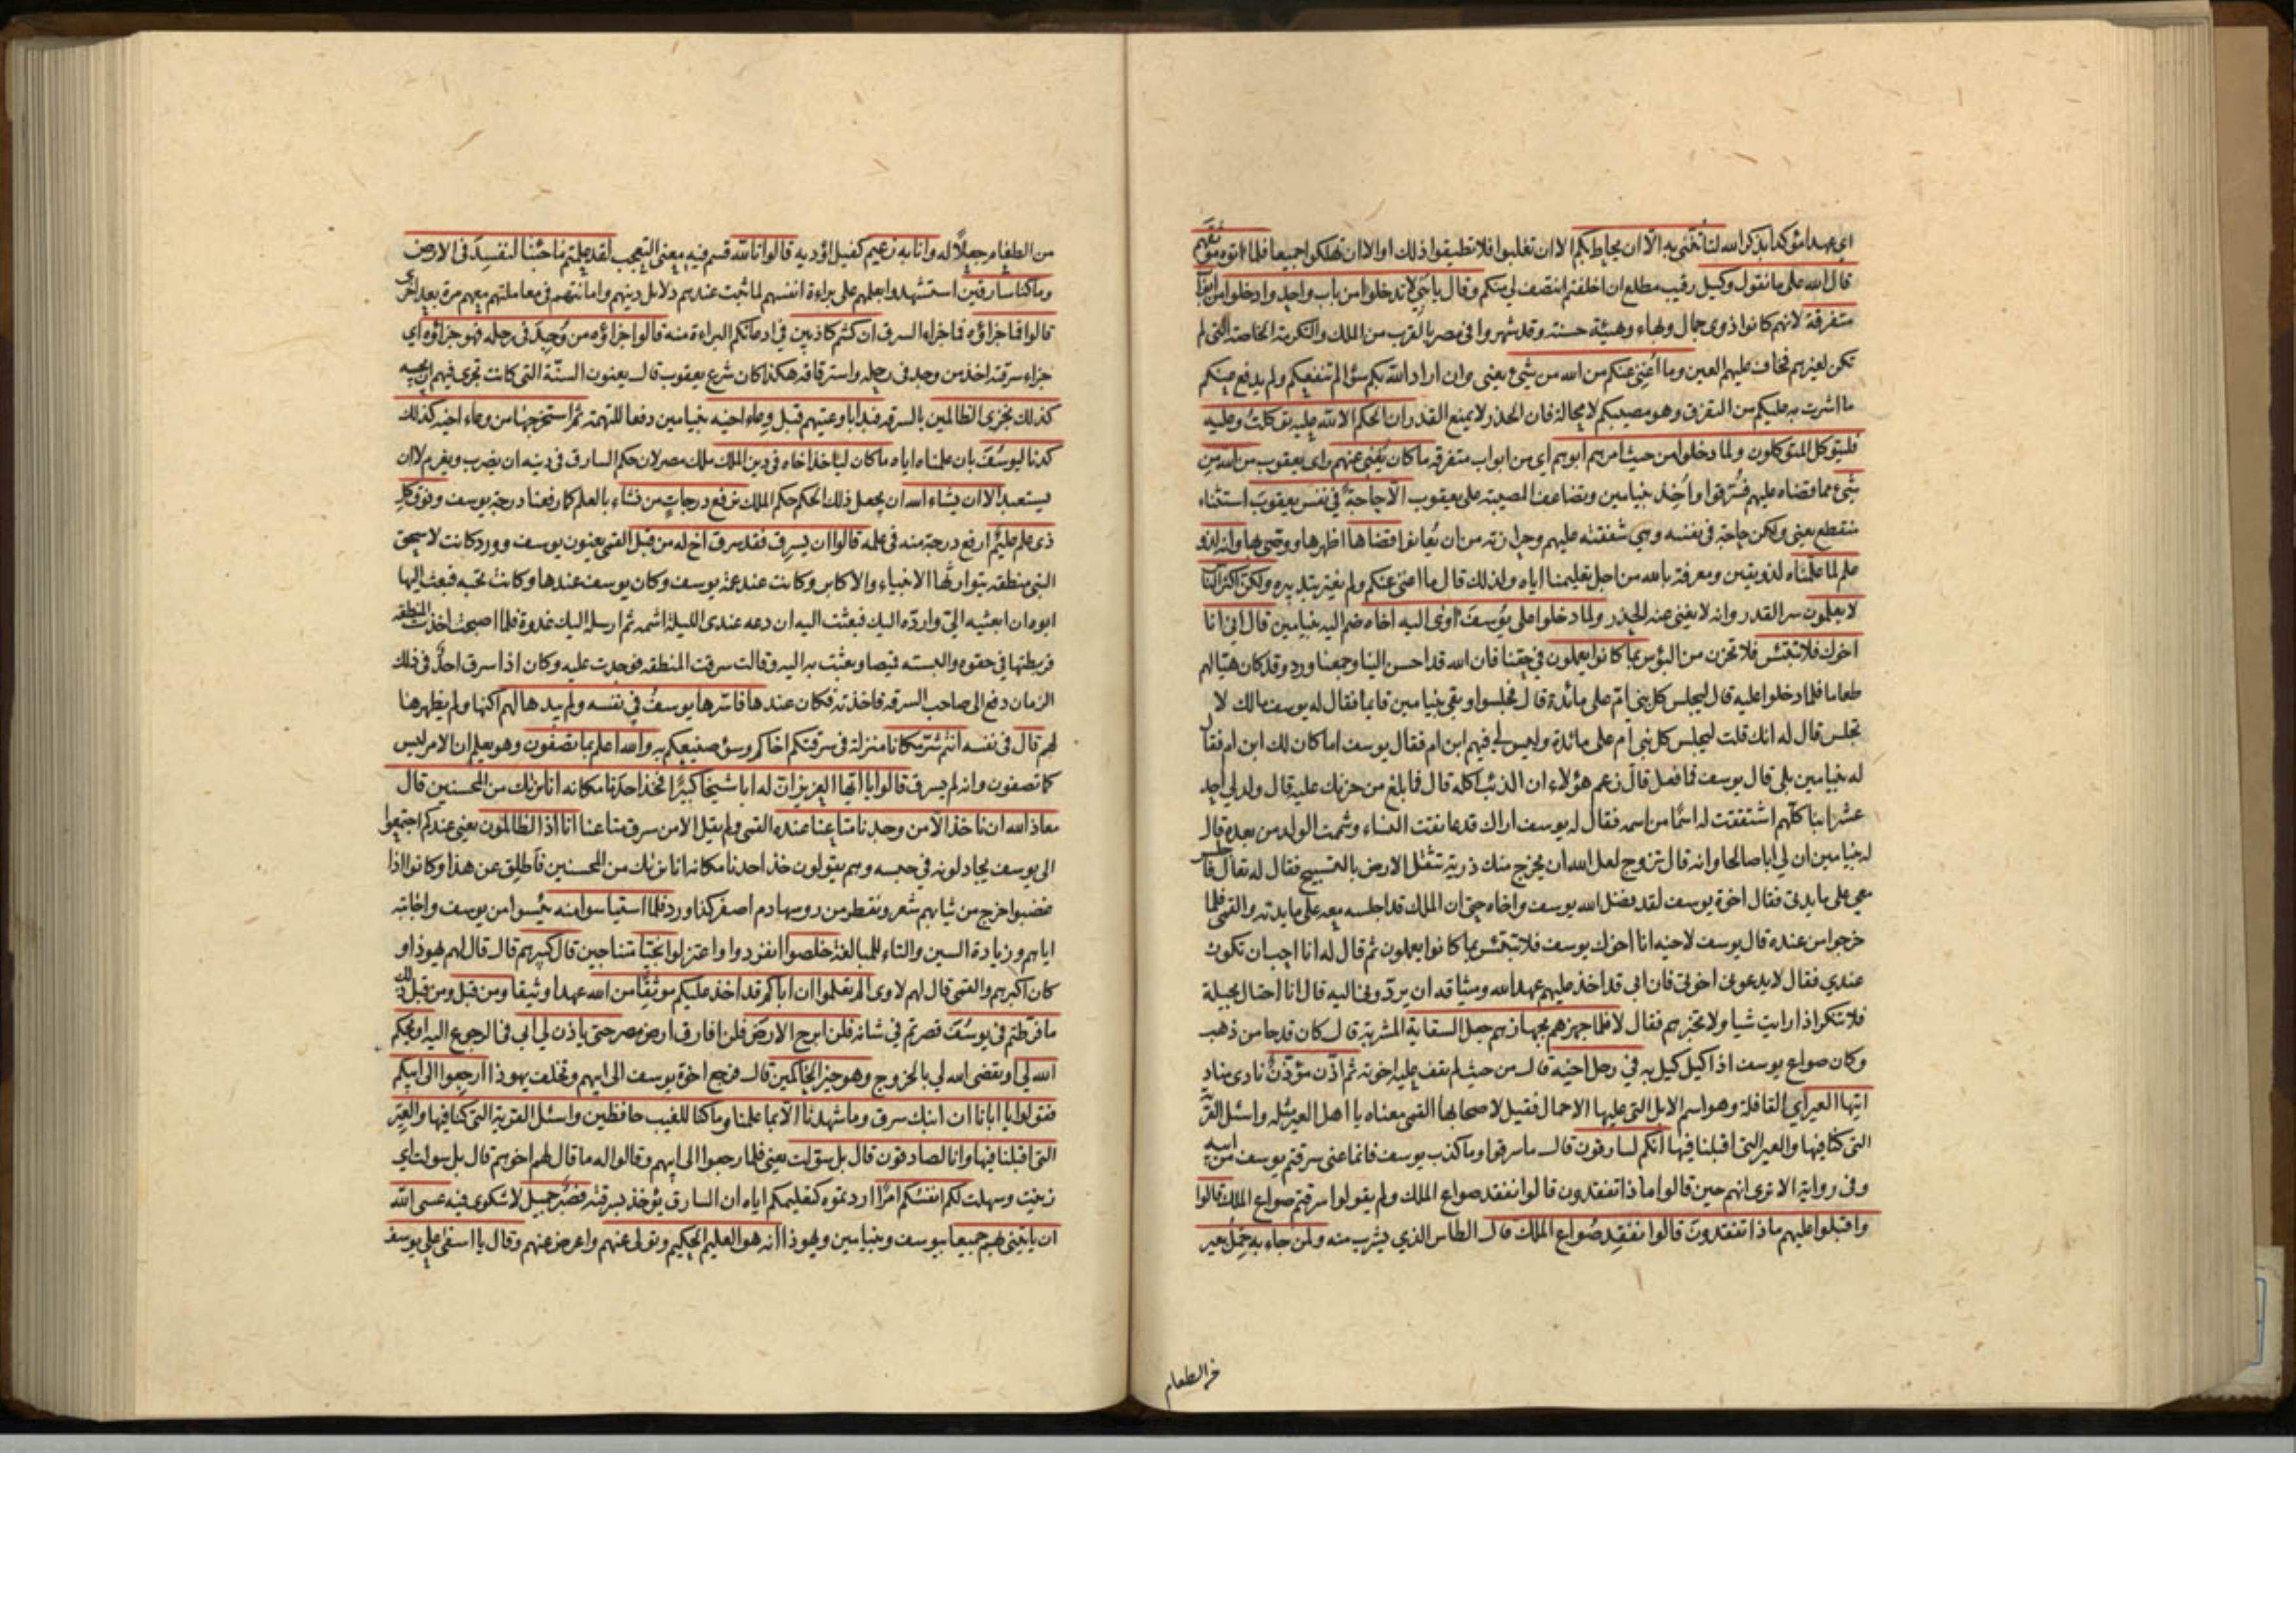 اي عهدا مؤكدا بذكر الله لتأتنّني به الّا ان يحاط بكم الا ان تغلبوا فلا تطيقوا ذلك او الا ان تهلكوا جميعا فلما اتوه موثقهم
قال الله على ما نقول وكيل رقيب مطلع ان اخلفتم انتصف لي منكم وقال يا بَنيّ لا تدخلوا من باب واحد وادخلوا من ابواب
متفرقة لانهم كانوا ذوي جمال وبهاء وهيئة حسنة وقد شهروا في مصر بالقرب من الملك والتكرمة الخاصة التي لم
تكن لغيرهم فخاف عليهم العين وما اُغني عنكم من الله من شيء يعني وان اراد الله بكم سؤا لم ينفعكم ولم يدفع عنكم
ما اشرت به عليكم من التفرق وهو مصيبكم لا محالة فان الحذر لا يمنع القدر ان الحكم الا لله عليه توكلتُ وعليه
فليتوكل المتوكلون ولما دخلوا من حيث امرهم ابوهم اي من ابواب متفرقه ما كان يُغني عنهم راى يعقوب من الله من
شيء مما قضاه عليهم فسُرّقوا واُخِذ بنيامين وتضاعف المصيبة على يعقوب الّا حاجةً في نفس يعقوبَ استثناء
منقطع يعني ولكن حاجة في نفسه وهي شفقته عليهم وحرازته من ان يُعانوا قضاها اظهرها ووصّى بها وانه لذو
علم لما علّمناه لذو يقين ومعرفة بالله من اجل تعليمنا اياه ولذلك قال ما اغني عنكم ولم يغتر بتدبيره ولكن اكثر الناس
لا يعلمون سر القدر وانه لا يغني عنه الحذر ولما دخلوا على يوُسفَ اوى اليه اخاه ضم اليه بنيامين قال اني انا
اخوك فلا تبتئس فلا تحزن من البؤس بما كانوا يعملون في حقنا فان الله قد احسن الينا وجمعنا ورد وقد كان هيّأ لهم
طعاما فلما دخلوا عليه قال ليجلس كل بني امّ على مائدة قال فجلسوا وبقي بنيامين قايما فقال له يوسف مالك لا
تجلس قال له انك قلت ليجلس كل بني ام على مائدة وليس لي فيهم ابن ام فقال يوسف اما كان لك ابن ام فقال
له بنيامين بلى قال يوسف فما فعل قال زعم هؤلاء ان الذئب اكله قال فما بلغ من حزنك عليه قال ولد لي احد
عشر ابنا كلّهم اشتققت له اسمًا من اسمه فقال له يوسف اراك قد عانقت النساء وشممت الولد من بعده قال
له بنيامين ان لي ابا صالحا وانه قال تزوج لعل الله ان يخرج منك ذرية تثقل الارض بالتسبيح فقال له تعال فاجلس
معي على مايدتي فقال اخوة يوسف لقد فضل الله يوسف واخاه حتى ان الملك قد اجلسه معه على مايدته والقمي فلما
خرجوا من عنده قال يوسف لاخيه انا اخوك يوسف فلا تبتئس بما كانوا يعملون ثم قال له انا احب ان تكون
عندي فقال لا يدعوني اخوتي فان ابي قد اخذ عليهم عهد الله وميثاقه ان يردّوني اليه قال انا احتال بحيلة
فلا تنكر اذا رايت شيا ولا تخبرهم فقال لا فلما جهزهم بجهازهم جعل السقاية المشربة قال كان قدحا من ذهب
وكان صواع يوسف اذا كيل كيل به في رحل اخيه قال من حيث لم يقف عليه اخوته ثم اذّن مؤذّنٌ نادى مناد
ايتها العير اي القافلة وهو اسم الابل التي عليها الاحمال فقيل لاصحابها القمي معناه يا اهل العير مثله واسئل القرية
التي كنا فيها والعير التي اقبلنا فيها انكم لسارقون قال ما سرقوا وما كذب يوسف فانما عنى سرقتم يوسف من ابيه
وفي رواية الا ترى انهم حين قالوا ما ذا تفقدون قالوا نفقد صواع الملك ولم يقولوا سرقتم صواع الملك قالوا
واقبلوا عليهم ماذا تفقدونَ قالوا نفقِد صُواع الملك قال الطاس الذي يشرب منه ولمن جاء به حِمْلُ بعير
من الطعام
من الطعام جعلًا له وانا به زعيم كفيل اؤديه قالوا تالله قسم فيه معنى التعجب لقد علمتم ما جئنا لنفسِدَ في الارض
وما كنا سارقين استشهدوا بعلمهم على براءة انفسهم لما ثبت عندهم دلايل دينهم وامانتهم في معاملتهم معهم مرة بعد اخرى
قالوا فما جزاؤه فما جزاء السرق ان كنتم كاذبين في ادعائكم البراءة منه قالوا جزاؤه من وُجِدَ في رحله فهو جزاؤه اي
جزاء سرقته اخذ من وجد في رحله واسترقاقه هكذا كان شرع يعقوب قال يعنون السنّة التي كانت تجري فيهم ان يحبسه
كذلك نجزي الظالمين بالسرقة فبدا باوعيتهم قبل وعاء اخيه بنيامين دفعا للتهمة ثم استخرجها من وعاء اخيه كذلك
كدنا ليوسُفَ بان علمناه اياه ما كان لياخذ اخاه في دين الملك ملك مصر لان حكم السارق في دينه ان يضرب ويغرم لا ان
يستعبد الا ان يشاء الله ان يجعل ذلك الحكم حكم الملك نرفع درجاتٍ من نشاء بالعلم كما رفعنا درجة يوسف وفوق كل
ذي علم عليم ارفع درجة منه في علمه قالوا ان يسرق فقد سرق اخ له من قبل القمي يعنون يوسف وورد كانت لاسحق
النبي منطقه يتوارثها الانبياء والاكابر وكانت عند عمّة يوسف وكان يوسف عندها وكانت تحبه فبعث اليها
ابوه ان ابعثيه اليّ واردّه اليك فبعثت اليه ان دعه عندي الليلة اشمه ثم ارسله اليك غدوة فلما اصبحت اخذت المنطقه
فربطتها في حقوه والبسته قيصا وبعثت به اليه وقالت سرقت المنطقه فوجدت عليه وكان اذا سرق احدٌ في ذلك
الزمان دفع الى صاحب السرقه فاخذته فكان عندها فاسّرها يوسفُ في نفسه ولم يبدها لهم اكنها ولم يظهرها
لهم قال في نفسه انتم شرّ مكانا منزلة في سرقتكم اخاكم وسؤ صنيعكم به والله اعلم بما تصفون وهو يعلم ان الامر ليس
كما تصفون وانه لم يسرق قالوا يا ايها العزيز انّ له ابا شيخا كبيرًا فخذ احدنا مكانه انا نراك من المحسنين قال
معاذ الله ان ناخذ الّا من وجدنا متاعنا عنده القمي ولم يقل الا من سرق متاعنا انا اذا لظالمون يعني عندكم اجتمعوا
الى يوسف يجادلونه في حبسه وهم يقولون خذ احدنا مكانه انا نراك من المحسنين فاطلق عن هذا وكانوا اذا
غضبوا خرج من ثيابهم شعر وتقطر من روسها دم اصفر كذا ورد فلما استياسوا منه يئسوا من يوسف واجابته
اياهم وزيادة السين والتاء للمبالغة خلصوا انفردوا واعتزلوا نجيّا متناجين قال كبيرهم قال قال لهم يهوذا و
كان اكبرهم والقمي قال لهم لاوى الم تعلموا ان اباكم قد اخذ عليكم موثقًا من الله عهدا وثيقا ومن قبل ومن قبل ذلك
ما فرّطتم في يوسُفَ قصرتم في شانه فلن ابرح الارض فلن افارق ارض مصر حتى ياذن لي ابي في الرجوع اليه او يحكم
الله لي او يقضى الله لي بالخروج وهو خير الحاكمين قال فرجع اخوة يوسف الى ابيهم وتخلف يهوذا ارجِعوا الى ابيكم
فقولوا يا ابانا ان ابنك سرق وما شهدنا الّا بما علمنا وما كنا للغيب حافظين واسئل القرية التي كنا فيها والعير
التي اقبلنا فيها وانا لصادقون قال بل سوّلت يعني فلما رجعوا الى ابيهم وقالوا له ما قال لهم اخوهم قال بل سولت اي
زينت وسهلت لكم انفسُكم امرًا اردتموه كتعليمكم اياه ان السارق يؤخذ بسرقته فصبر جميل لا شكوى فيه عسى الله
ان ياتيني بهم جميعا بيوسف وبنيامين ويهوذا انه هو العليم الحكيم وتولى عنهم واعرض عنهم وقال يا اسفى على يوسف